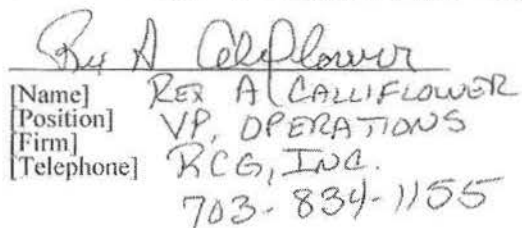 Rex A Calliflower
[Name] REX A CALLIFLOWER
[Position] VP, OPERATIONS
[Firm] RCG, INC.
[Telephone] 703-834-1155